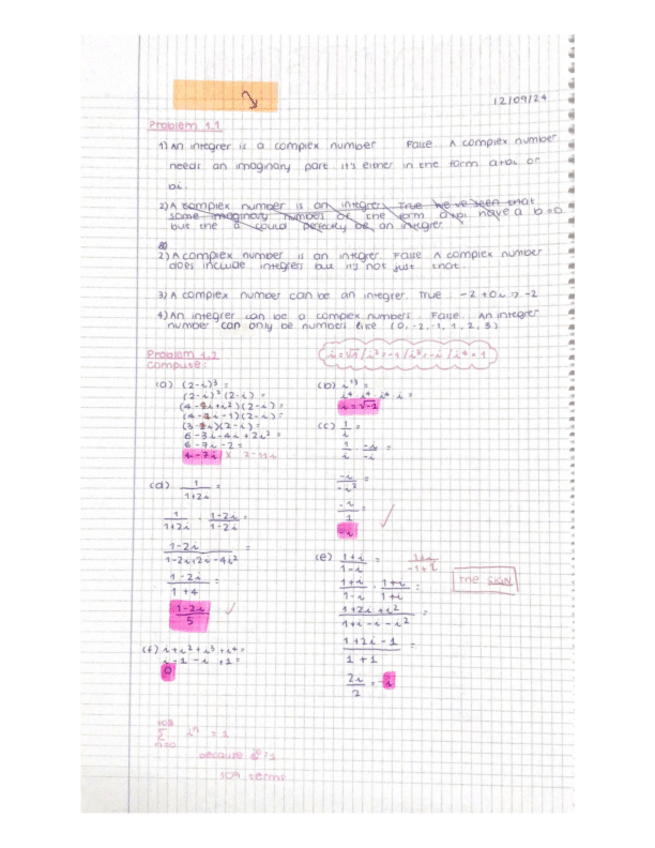 12/09/24
Problem 1.1
1) An integrer is a complex number False. A complex number
needs an imaginary part it's either in the form a+bi or
bi.
2) A complex number is an integrer. True we've seen that
some imaginary numbers of the form a+bi have a b=0
but the a could perfectly be an integrer.
2) A complex number is an integer. False A complex number
does include integers but it's not just that.
3) A complex number can be an integrer. True -2+0i → -2
4) An integrer can be a complex numbers. False. An integrer
number can only be numbers like (0,-2,-1,1,2,3)
Problem 1.2
compute:
i=√-1 / i²=-1 / i³=-i / i⁴=1
(a) (2-i)³ =
(2-i)²(2-i) =
(4-4i+i²)(2-i) =
(4-4i-1)(2-i) =
(3-4i)(2-i) =
6-3i-4i+2i² =
6-7i-2 =
4-7i x 2-11i
(b) i¹³ =
i⁴·i⁴·i⁴·i =
i=√-1
(c) 1/i =
1/i · -i/-i =
-i/-i² =
-i/1 =
-i
(d) 1/1+2i =
1/1+2i · 1-2i/1-2i =
1-2i/1-2i+2i-4i² =
1-2i/1+4 =
1-2i/5
(e) 1+i/1-i =
1+i/1-i · 1+i/1+i =
1+2i+i²/1+i-i-i² =
1+2i-1/1+1 =
2i/2 =
the SIGN
(f) i+i²+i³+i⁴=
i-1-i+1=
0
n=0 iⁿ = 1
because
terms